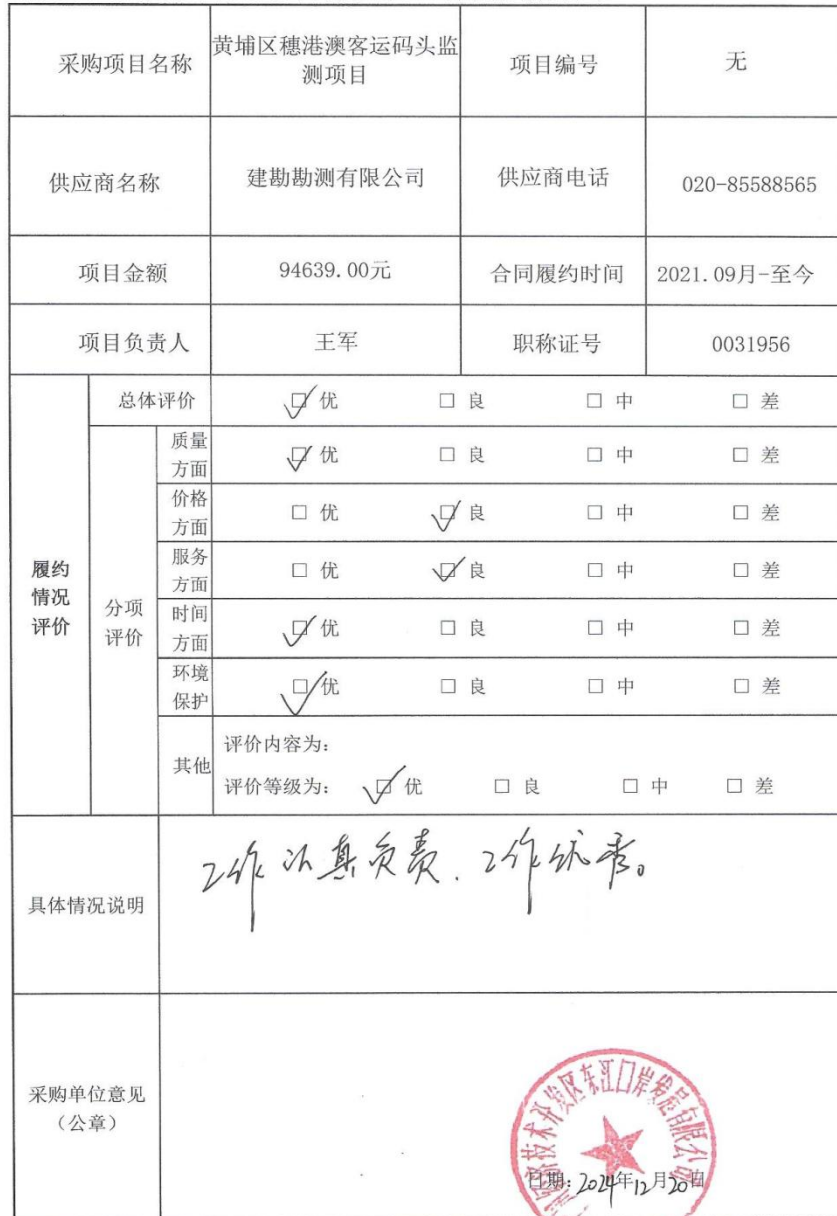 采购项目名称
黄埔区穗港澳客运码头监
测项目
项目编号
无
供应商名称
建勘勘测有限公司
供应商电话
020-85588565
项目金额
94639.00元
合同履约时间
2021.09月-至今
项目负责人
王军
职称证号
0031956
履约
情况
评价
总体评价
☑ 优 □ 良 □ 中 □ 差
分项
评价
质量
方面
☑ 优 □ 良 □ 中 □ 差
价格
方面
□ 优 ☑ 良 □ 中 □ 差
服务
方面
□ 优 ☑ 良 □ 中 □ 差
时间
方面
☑ 优 □ 良 □ 中 □ 差
环境
保护
☑ 优 □ 良 □ 中 □ 差
其他
评价内容为:
评价等级为: ☑ 优 □ 良 □ 中 □ 差
具体情况说明
工作认真负责、工作优秀。
采购单位意见
(公章)
技术开发区东江口岸发展有限公司
日期:2024年12月20日